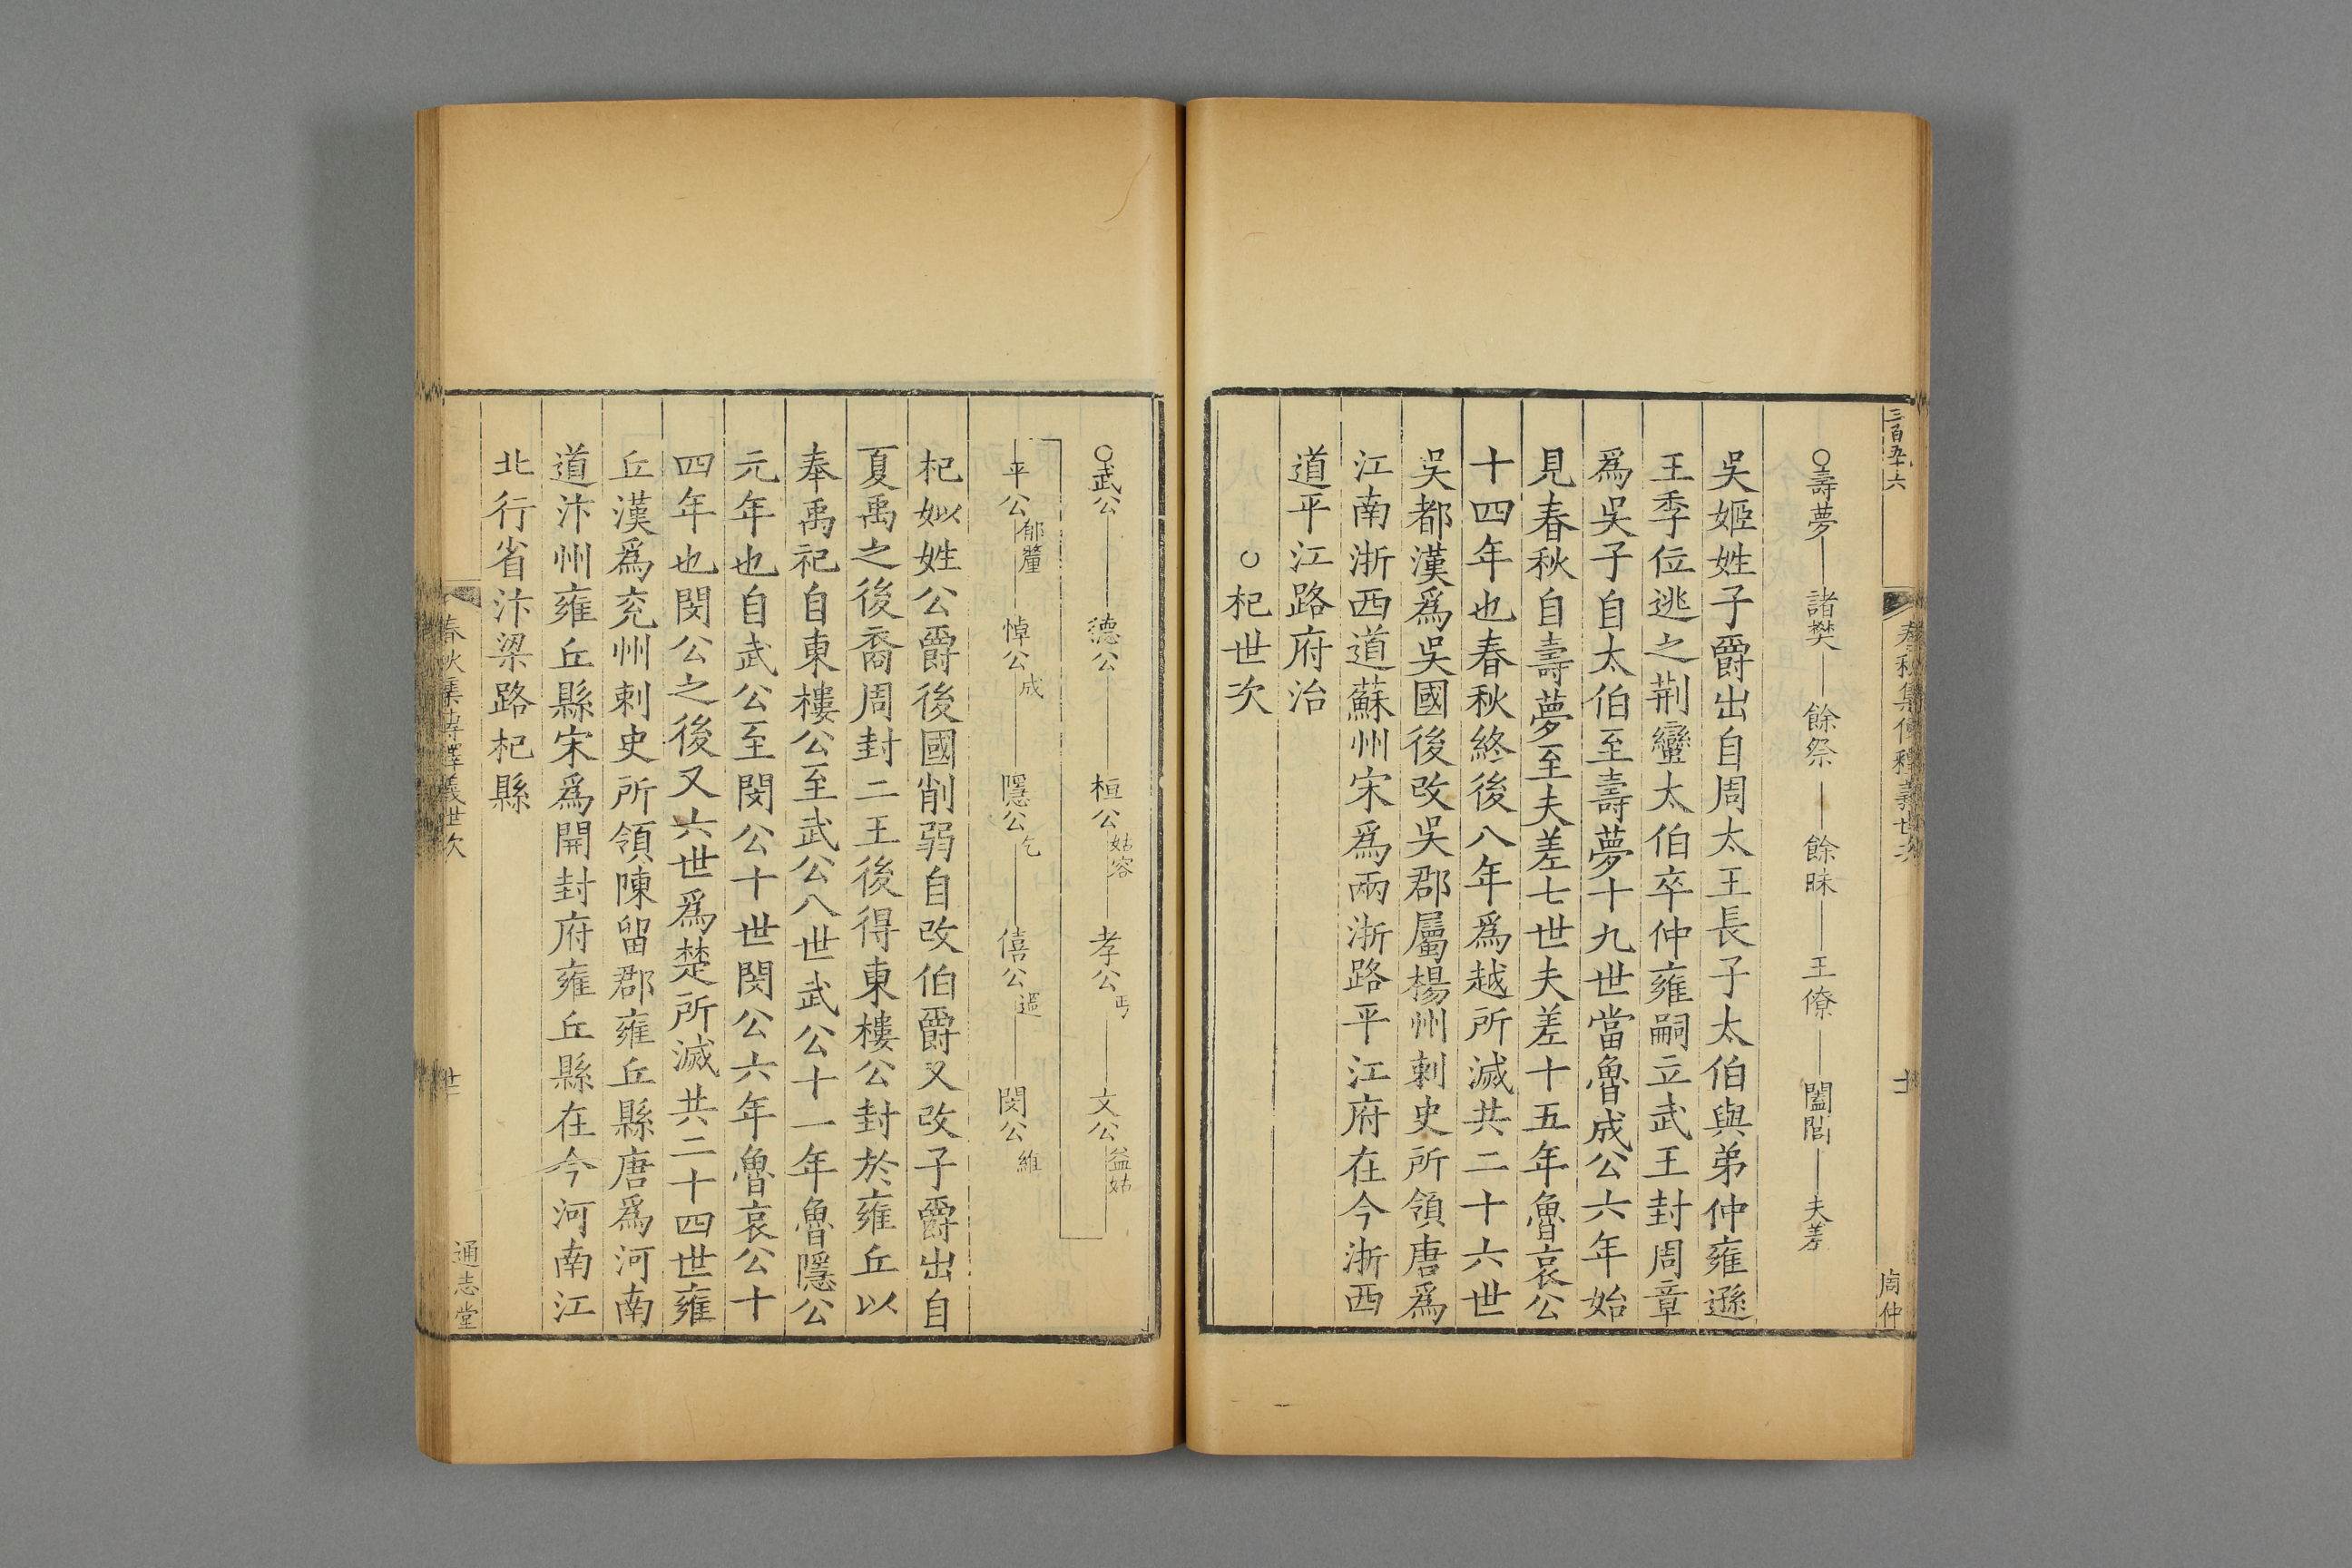 三百五十六
春秋集傳釋義世次
周仲
○壽夢 諸樊 餘祭 餘昧 王僚 闔閭 夫差
吳姬姓子爵出自周太王長子太伯與弟仲雍遜
王季位逃之荆蠻太伯卒仲雍嗣立武王封周章
爲吳子自太伯至壽夢十九世當魯成公六年始
見春秋自壽夢至夫差七世夫差十五年魯哀公
十四年也春秋終後八年爲越所滅共二十六世
吳都漢爲吳國後改吳郡屬楊州刺史所領唐爲
江南浙西道蘇州宋爲兩浙路平江府在今浙西
道平江路府治
○杞世次
○武公 德公 桓公姑容 孝公丐 文公益姑
平公郁釐 悼公成 隱公乞 僖公過 閔公維
杞姒姓公爵後國削弱自改伯爵又改子爵出自
夏禹之後裔周封二王後得東樓公封於雍丘以
奉禹祀自東樓公至武公八世武公十一年魯隱公
元年也自武公至閔公十世閔公六年魯哀公十
四年也閔公之後又六世爲楚所滅共二十四世雍
丘漢爲兖州刺史所領陳留郡雍丘縣唐爲河南
道汴州雍丘縣宋爲開封府雍丘縣在今河南江
北行省汴梁路杞縣
春秋集傳釋義世次
廿二
通志堂